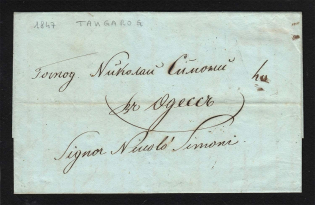 1847 TANGAROG
Господ Николай Симоний
въ Одессѣ
Signor Nicolo' Simoni.